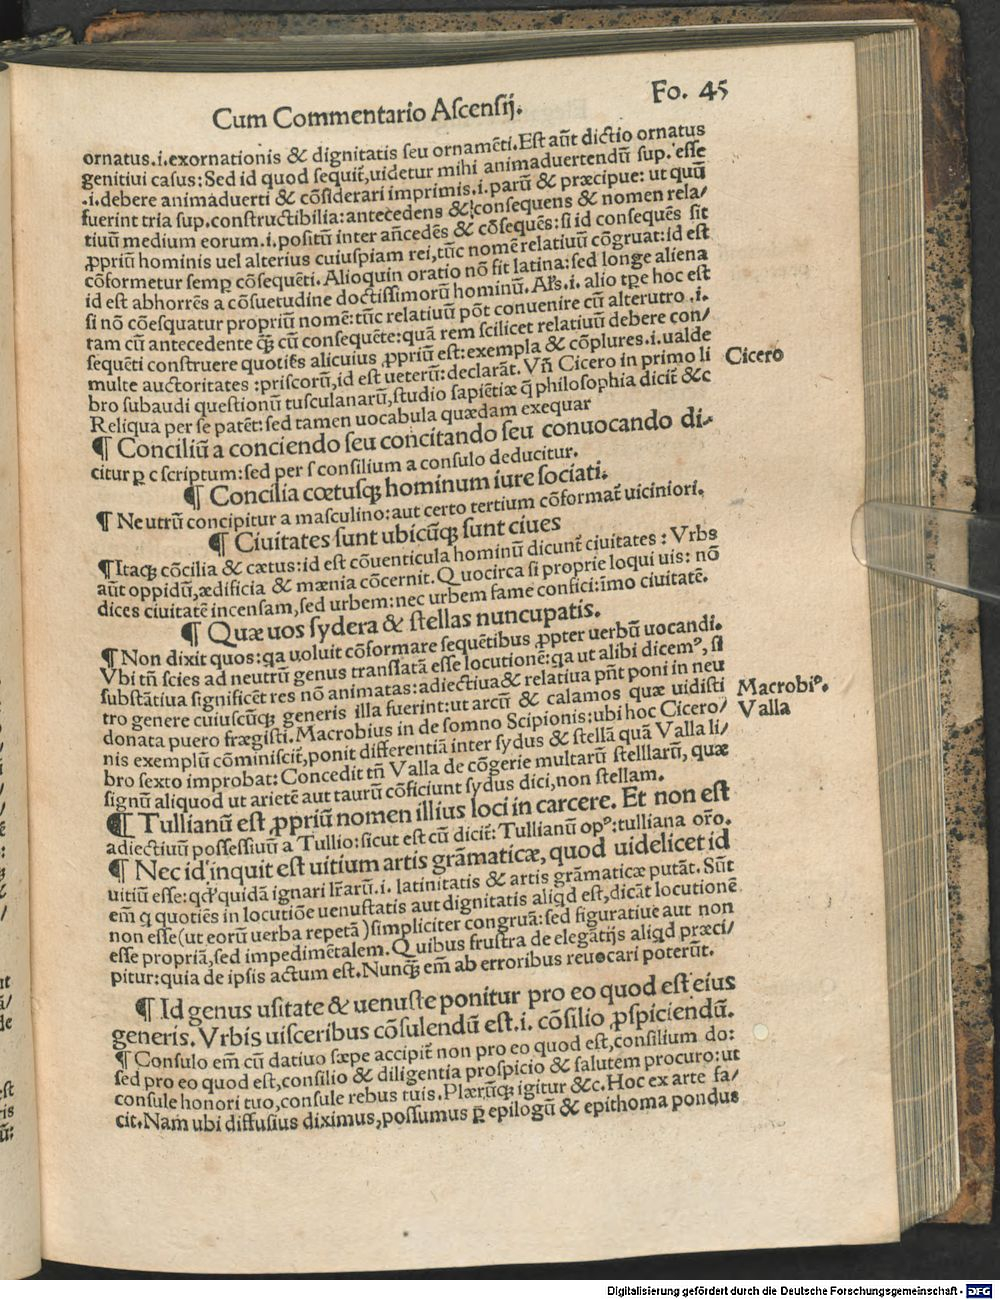 Cum Commentario Ascensij.
Fo. 45
ornatus.i.exornationis & dignitatis seu ornamẽti.Est aũt dictio ornatus
genitiui casus:Sed id quod sequit̃,uidetur mihi animaduertendũ sup. esse
.i.debere animaduerti & cõsiderari imprimis.i.parũ & præcipue: ut quũ
fuerint tria sup.constructibilia:antecedens & consequens & nomen rela/
tiuũ medium eorum.i.positũ inter añcedẽs & cõsequẽs:si id consequẽs sit
ꝓpriũ hominis uel alterius cuiuspiam rei,tũc nomẽ relatiuũ cõgruat:id est
cõformetur semꝑ cõsequẽti.Alioquin oratio nõ fit latina:sed longe aliena
id est abhorrẽs a cõsuetudine doctissimorũ hominũ. Ar̃s.i. alio tꝑe hoc est
si nõ cõesquatur propriũ nomẽ:tũc relatiuũ põt conuenire cũ alterutro .i.
tam cũ antecedente ꝗ̃ cũ consequẽte:quã rem scilicet relatiuũ debere con/
sequẽti construere quotiẽs alicuius ꝓpriũ est:exempla & cõplures.i.ualde
multe auctoritates :priscorũ,id est ueterũ:declarãt.Vñ Cicero in primo li
Cicero
bro subaudi questionũ tusculanarũ,studio sapiẽtiæ q̃ philosophia dicit̃ &c
Reliqua per se patẽt:sed tamen uocabula quædam exequar
¶ Conciliũ a conciendo seu concitando seu conuocando di-
citur ꝑ c scriptum:sed per s consilium a consulo deducitur.
¶ Concilia cœtusq; hominum iure sociati.
¶ Neutrũ concipitur a masculino:aut certo tertium cõformat̃ uiciniori.
¶ Ciuitates sunt ubicũq; sunt ciues
¶Itaq; cõcilia & cætus:id est cõuenticula hominũ dicunt̃ ciuitates : Vrbs
aũt oppidũ,ædificia & mænia cõcernit.Quocirca si proprie loqui uis: nõ
dices ciuitatẽ incensam,sed urbem:nec urbem fame confici:ĩmo ciuitatẽ.
¶ Quæ uos sydera & stellas nuncupatis.
¶ Non dixit quos:qa uoluit cõformare sequẽtibus ꝓpter uerbũ uocandi.
Vbi tñ scies ad neutrũ genus translatã esse locutionẽ:qa ut alibi dicemꝰ, si
substãtiua significẽt res nõ animatas:adiectiua& relatiua pñt poni in neu
tro genere cuiuscũq; generis illa fuerint:ut arcũ & calamos quæ uidisti
donata puero frægisti.Macrobius in de somno Scipionis:ubi hoc Cicero/
Macrobiꝰ.
nis exemplũ cõminiscit̃,ponit differentiã inter sydus & stellã quã Valla li/
Valla
bro sexto improbat: Concedit tñ Valla de cõgerie multarũ stelllarũ, quæ
signũ aliquod ut arietẽ aut taurũ cõficiunt sydus dici,non stellam.
¶ Tullianũ est ꝓpriũ nomen illius loci in carcere. Et non est
adiectiuũ possessiuũ a Tullio:sicut est cũ dicit̃:Tullianũ opꝰ:tulliana or̃o.
¶ Nec id inquit est uitium artis grãmaticæ, quod uidelicet id
uitiũ esse: quidã ignari lr̃arũ.i. latinitatis & artis grãmaticæ putãt. Sũt
em̃ q quotiẽs in locutiõe uenustatis aut dignitatis aliqd est,dicãt locutionẽ
non esse(ut eorũ uerba repetã)simpliciter congruã:sed figuratiue aut non
esse propriã,sed impedimẽtalem.Quibus frustra de elegãtijs aliqd præci/
pitur:quia de ipsis actum est.Nunq̃ em̃ ab erroribus reuocari poterũt.
¶ Id genus usitate & uenuste ponitur pro eo quod est eius
generis. Vrbis uisceribus cõsulendũ est.i. cõsilio ꝓspiciendũ.
¶ Consulo em̃ cũ datiuo sæpe accipit̃ non pro eo quod est,consilium do:
sed pro eo quod est,consilio & diligentia prospicio & salutem procuro:ut
consule honori tuo,consule rebus tuis.Plærũq; igitur &c.Hoc ex arte fa/
cit.Nam ubi diffusius diximus,possumus ꝑ epilogũ & epithoma pondus
Digitalisierung gefördert durch die Deutsche Forschungsgemeinschaft - DFG